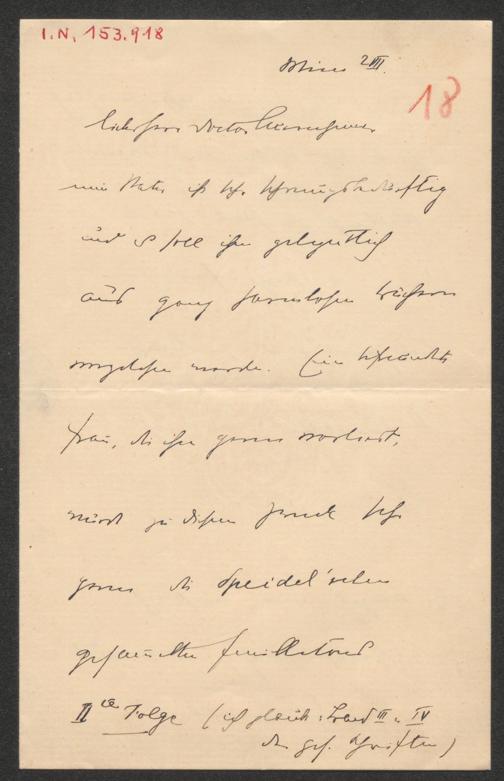 I.N. 153.918
Wien 2 III.
18
lieber Herr Doctor
mein Vater ist sehr schonungsbedürftig
und es soll ihm gelegentlich
aus ganz harmlosen Büchern
vorgelesen werden. Eine befreundete
Frau, die ihm gerne vorliest,
würde zu diesem Zweck sehr
gerne die Speidel'schen
gesammelten Feuilletons
IIte Folge (ich glaube: Band III u. IV
der ges. Schriften)